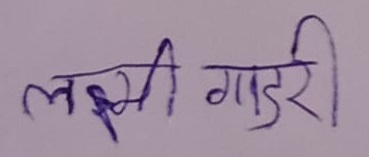 लक्ष्मी गाडरी